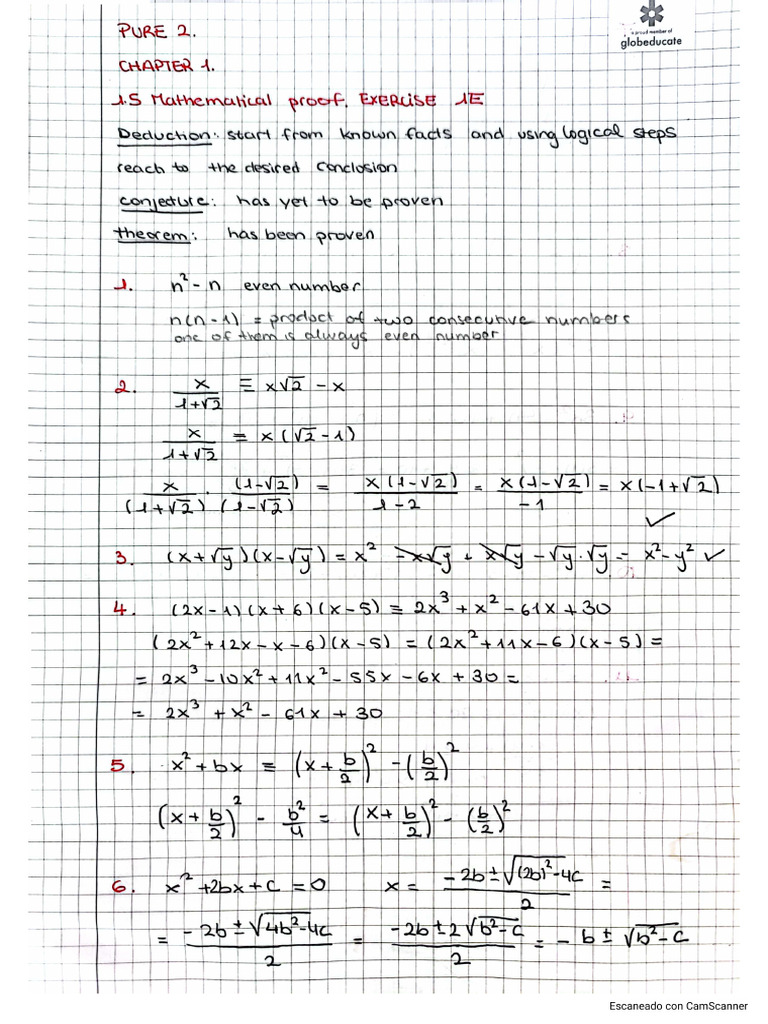 PURE 2.
a proud member of
globeducate
CHAPTER 1.
1.5 Mathematical proof. EXERCISE 1E
Deduction: start from known facts and using logical steps
reach to the desired conclusion
conjecture: has yet to be proven
theorem: has been proven
1. n² - n even number
n(n-1) = product of two consecutive numbers
one of them is always even number
2. x/(1+√2) ≡ x√2 - x
x/(1+√2) ≡ x(√2-1)
x/(1+√2) · (1-√2)/(1-√2) = x(1-√2)/(1-2) = x(1-√2)/-1 = x(-1+√2)
✓
3. (x+√y)(x-√y) = x² - x√y + x√y - √y·√y = x²-y² ✓
4. (2x-1)(x+6)(x-5) ≡ 2x³ + x² - 61x + 30
(2x²+12x-x-6)(x-5) = (2x²+11x-6)(x-5) =
= 2x³ - 10x² + 11x² - 55x - 6x + 30 =
= 2x³ + x² - 61x + 30
5. x² + bx ≡ (x + b/2)² - (b/2)²
(x + b/2)² - b²/4 = (x + b/2)² - (b/2)²
6. x² + 2bx + c = 0 x = (-2b ± √((2b)²-4c))/2 =
= (-2b ± √(4b²-4c))/2 = (-2b ± 2√(b²-c))/2 = -b ± √(b²-c)
Escaneado con CamScanner